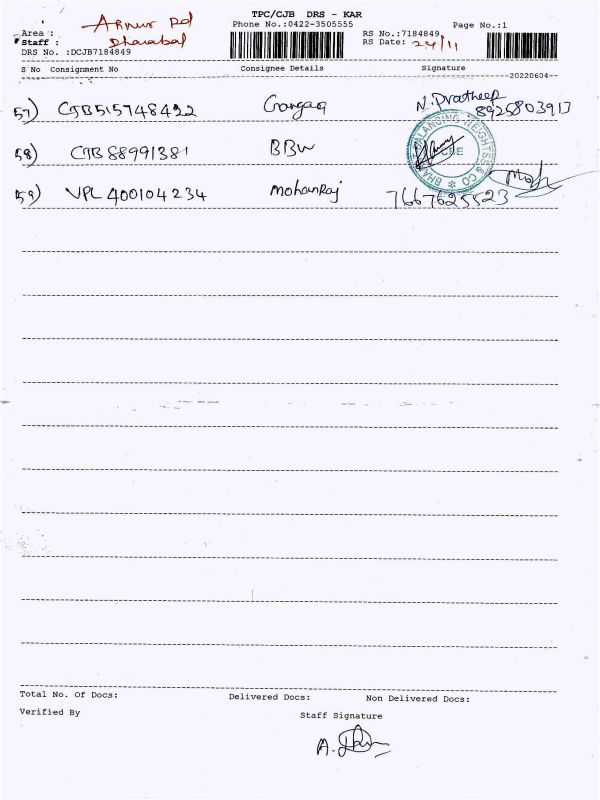 TPC/CJB DRS - KAR
Phone No.:0422-3505555
Page No.:1
Area :
Staff : Dharabal
DRS No. :DCJB7184849
RS No.:7184849
RS Date: 24/11
S No Consignment No Consignee Details Signature
20220604
57) CJB515748422 Gangaa N.Pratheep
8925803913
58) CJB 88991381 BBW
59) VPL 400104234 Mohanraj 7667625523
Total No. Of Docs: Delivered Docs: Non Delivered Docs:
Verified By Staff Signature